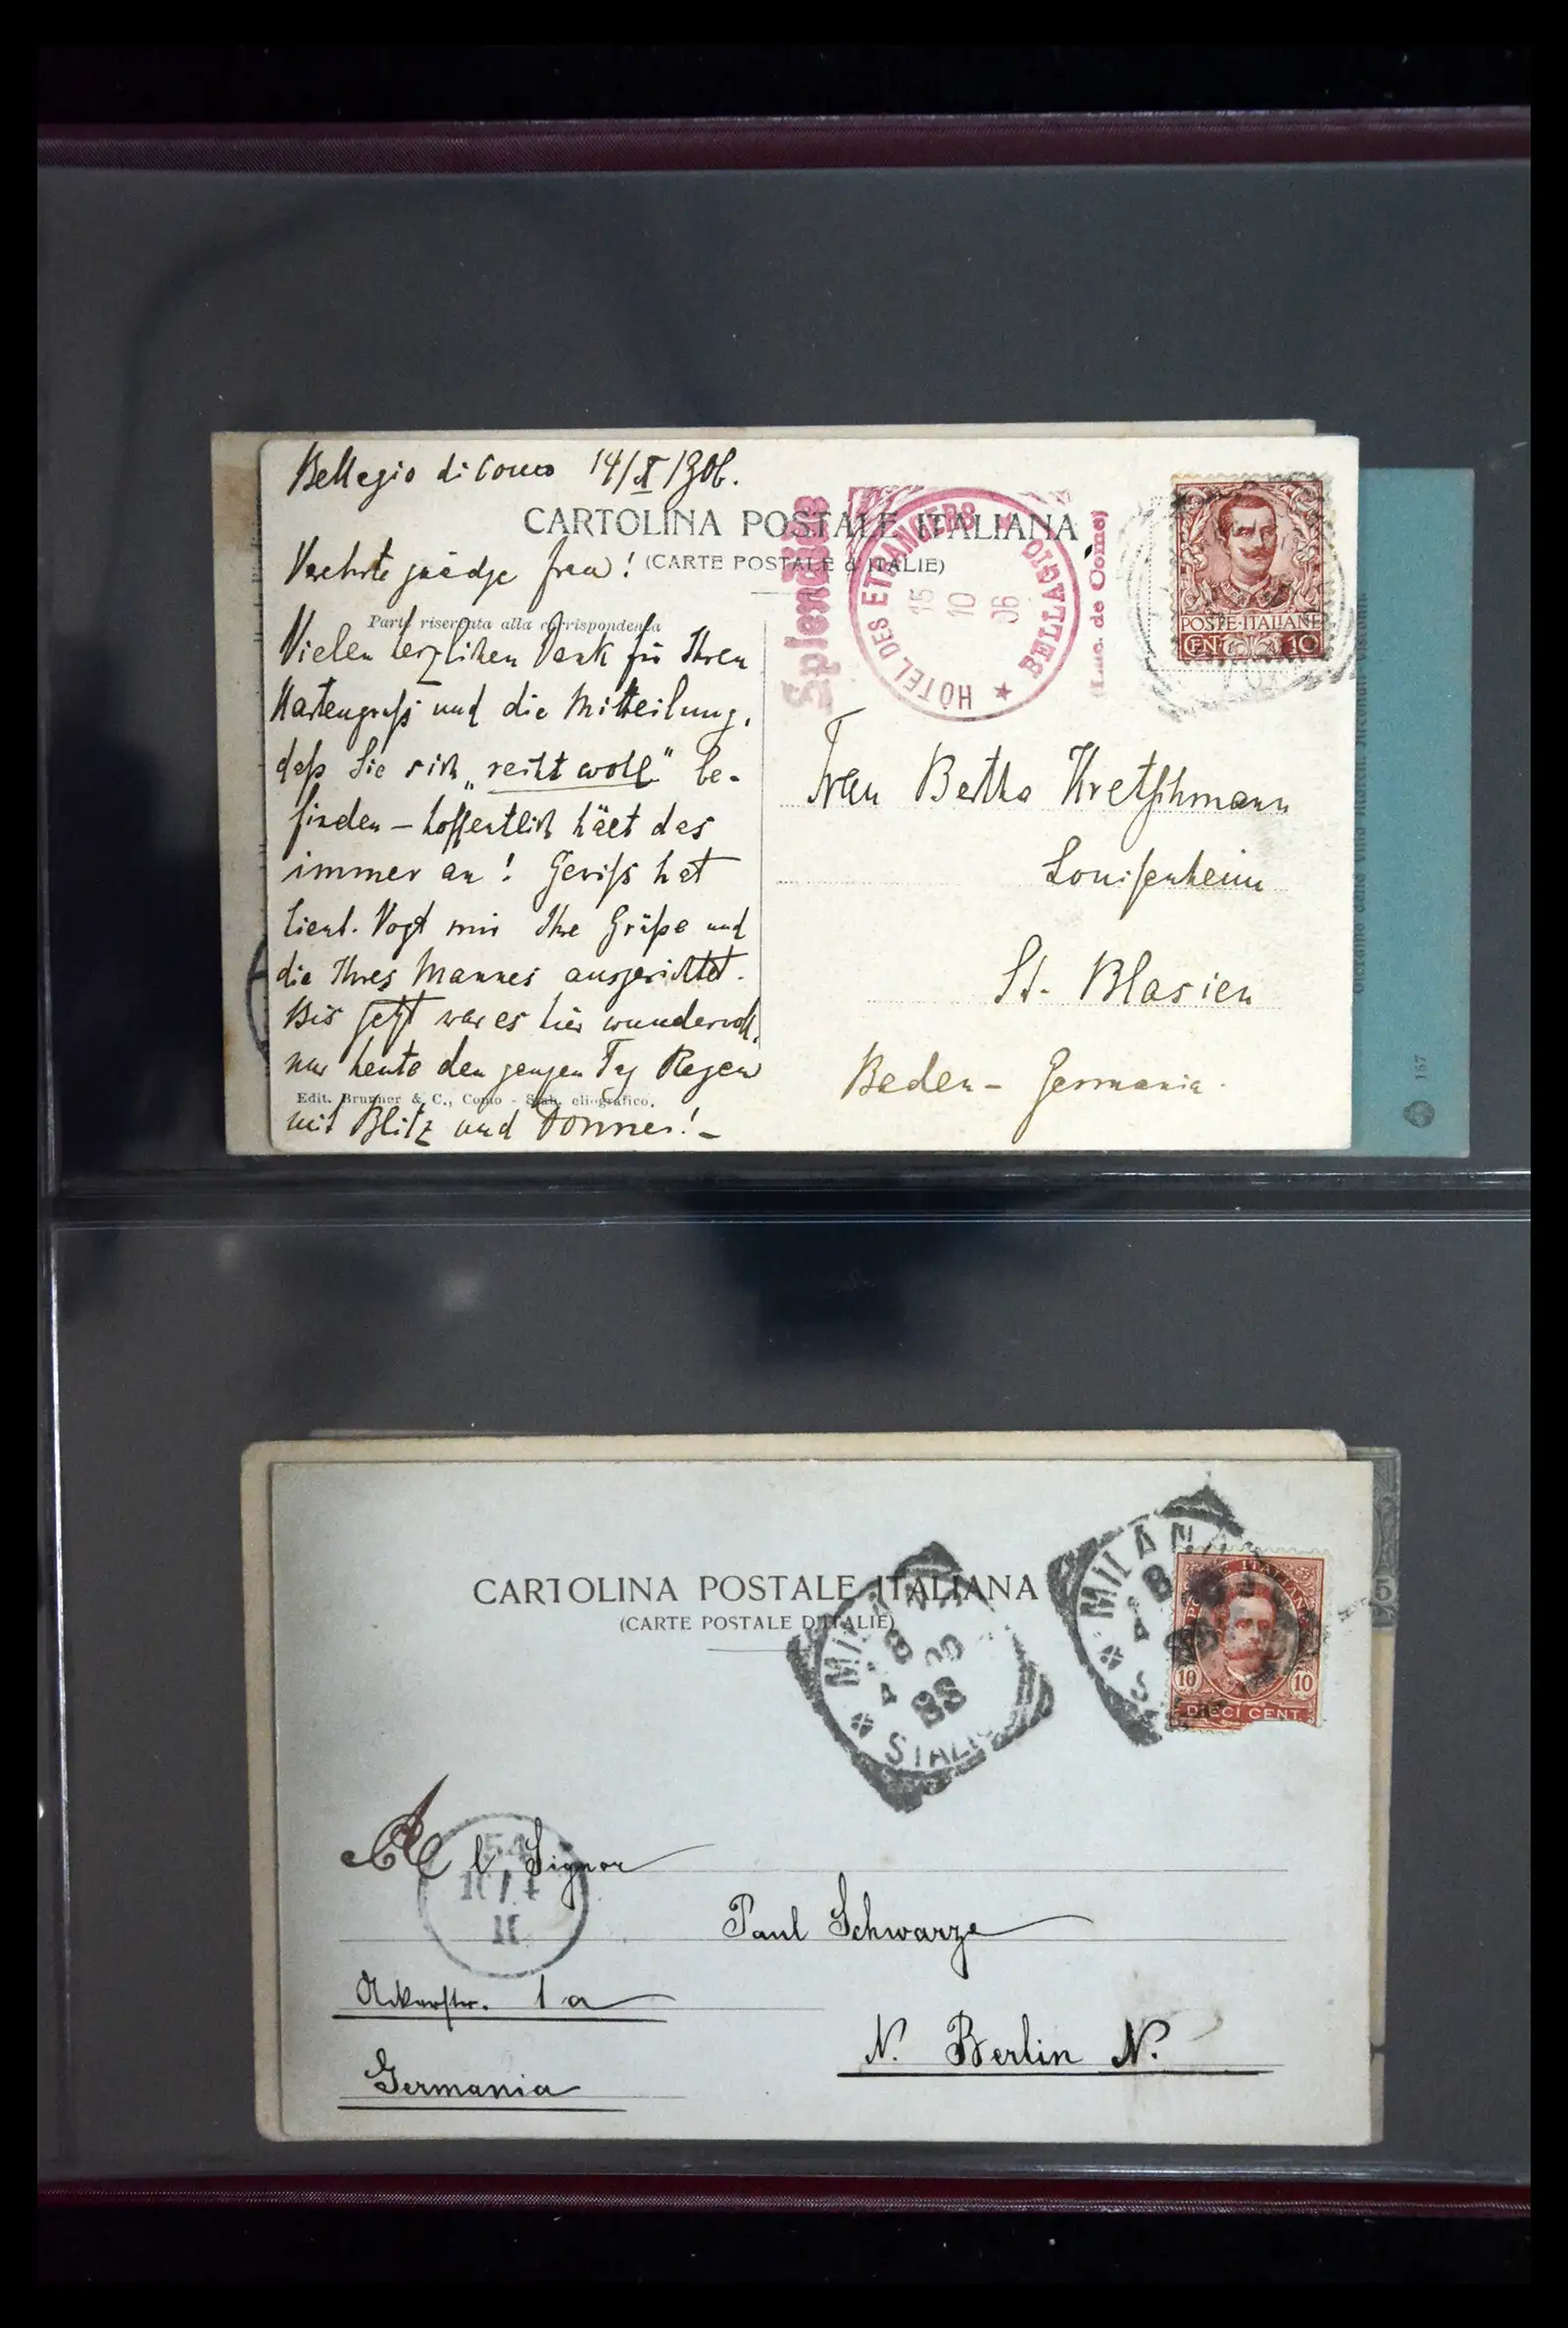 Bellagio di Como 14/X/906.
CARTOLINA POSTALE ITALIANA
(CARTE POSTALE d'ITALIE)
Verehrte gnädge Frau!
Parte riservata alla corrispondenza
Vielen herzlichen Dank für Ihren
Kartengruß und die Mitteilung,
daß Sie sich „recht wohl" be-
finden – hoffentlich hält das
immer an! Gewiß hat
Lieut. Vogt mir Ihre Grüße und
die Ihres Mannes ausgerichtet.
Bis jetzt war es hier wundervoll,
nur heute den ganzen Tag Regen
Edit. Brunner & C., Como - Stab. eliografico.
mit Blitz und Donner! –
Splendide
HÔTEL DES ETRANGERS
BELLAGIO
(Lac. de Como)
15
10
06
POSTE·ITALIANE
CEN. 10
Frau Bertha Kretschmann
Louisenheim
St. Blasien
Baden – Germania.
167
CARTOLINA POSTALE ITALIANA
(CARTE POSTALE D'ITALIE)
MILANO
8
4
98
8S
STALIO
MILANO
8
4
POSTE ITALIANE
10 10
DIECI CENT.
5
Al Signor
54
10/4
Paul Schwarze
Ackerstr. 1a
N. Berlin N.
Germania